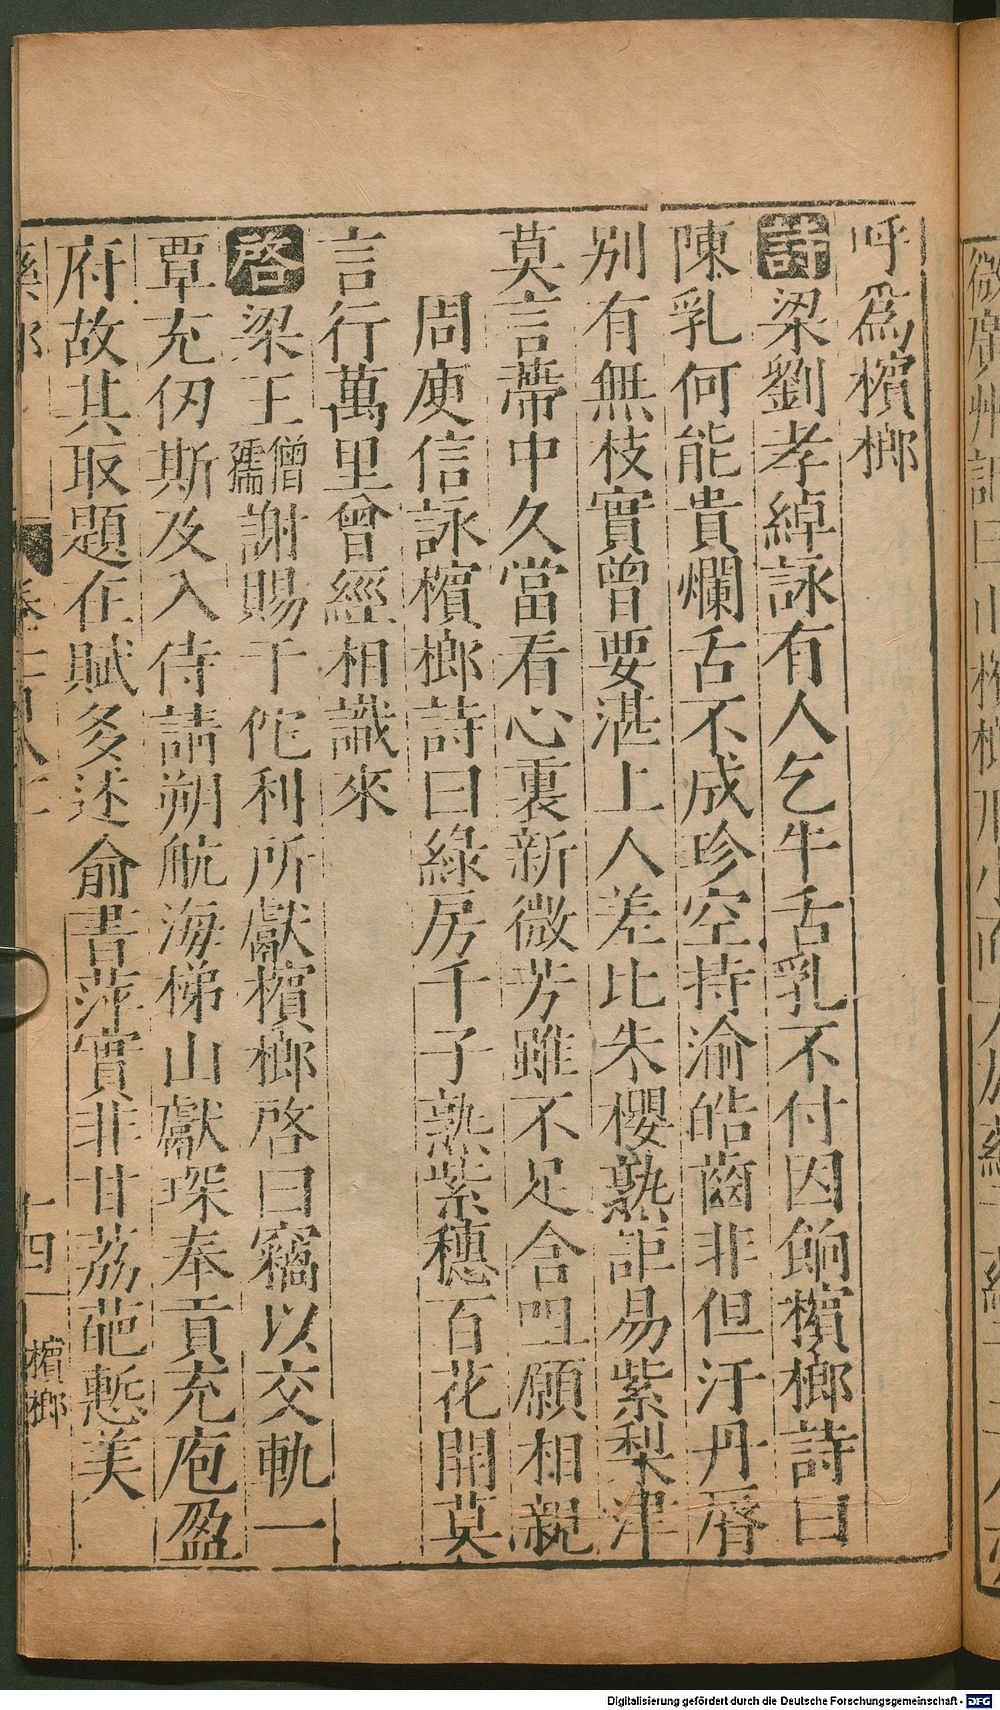 呼爲檳榔
詩梁劉孝綽詠有人乞牛舌乳不付因餉檳榔詩曰
陳乳何能貴爛舌不成珍空持渝皓齒非但汙丹脣
別有無枝實曾要湛上人差比朱櫻熟詎易紫梨津
莫言蔕中久當看心裏新微芳雖不足含咀願相親
周庾信詠檳榔詩曰綠房千子熟紫穗百花開莫
言行萬里曾經相識來
啓梁王僧孺謝賜干佗利所獻檳榔啓曰竊以交軌一
覃充仞斯及入侍請朔航海梯山獻琛奉貢充庖盈
府故其取題在賦多述俞書萍實非甘荔葩慙美
十四
檳榔
Digitalisierung gefördert durch die Deutsche Forschungsgemeinschaft - DFG